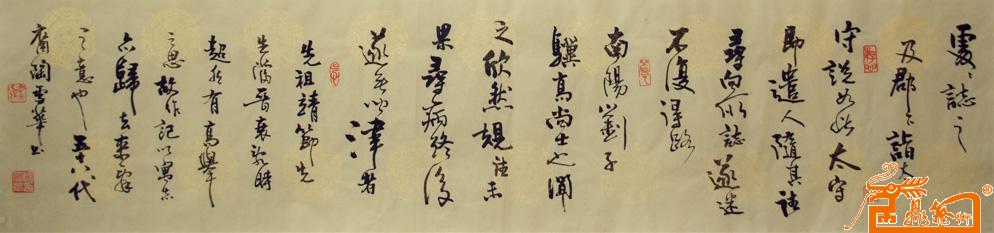 處處誌之
及郡下詣太
守說如此太守
即遣人隨其往
尋向所誌遂迷
不復得路
南陽劉子
驥高尚士也聞
之欣然規往未
果尋病終後
遂無問津者
先祖靖節先
生當晉衰亂時
超然有高舉
之思故作記以寓志
亦歸去來辭
之意也五十八代
裔陶雪華書